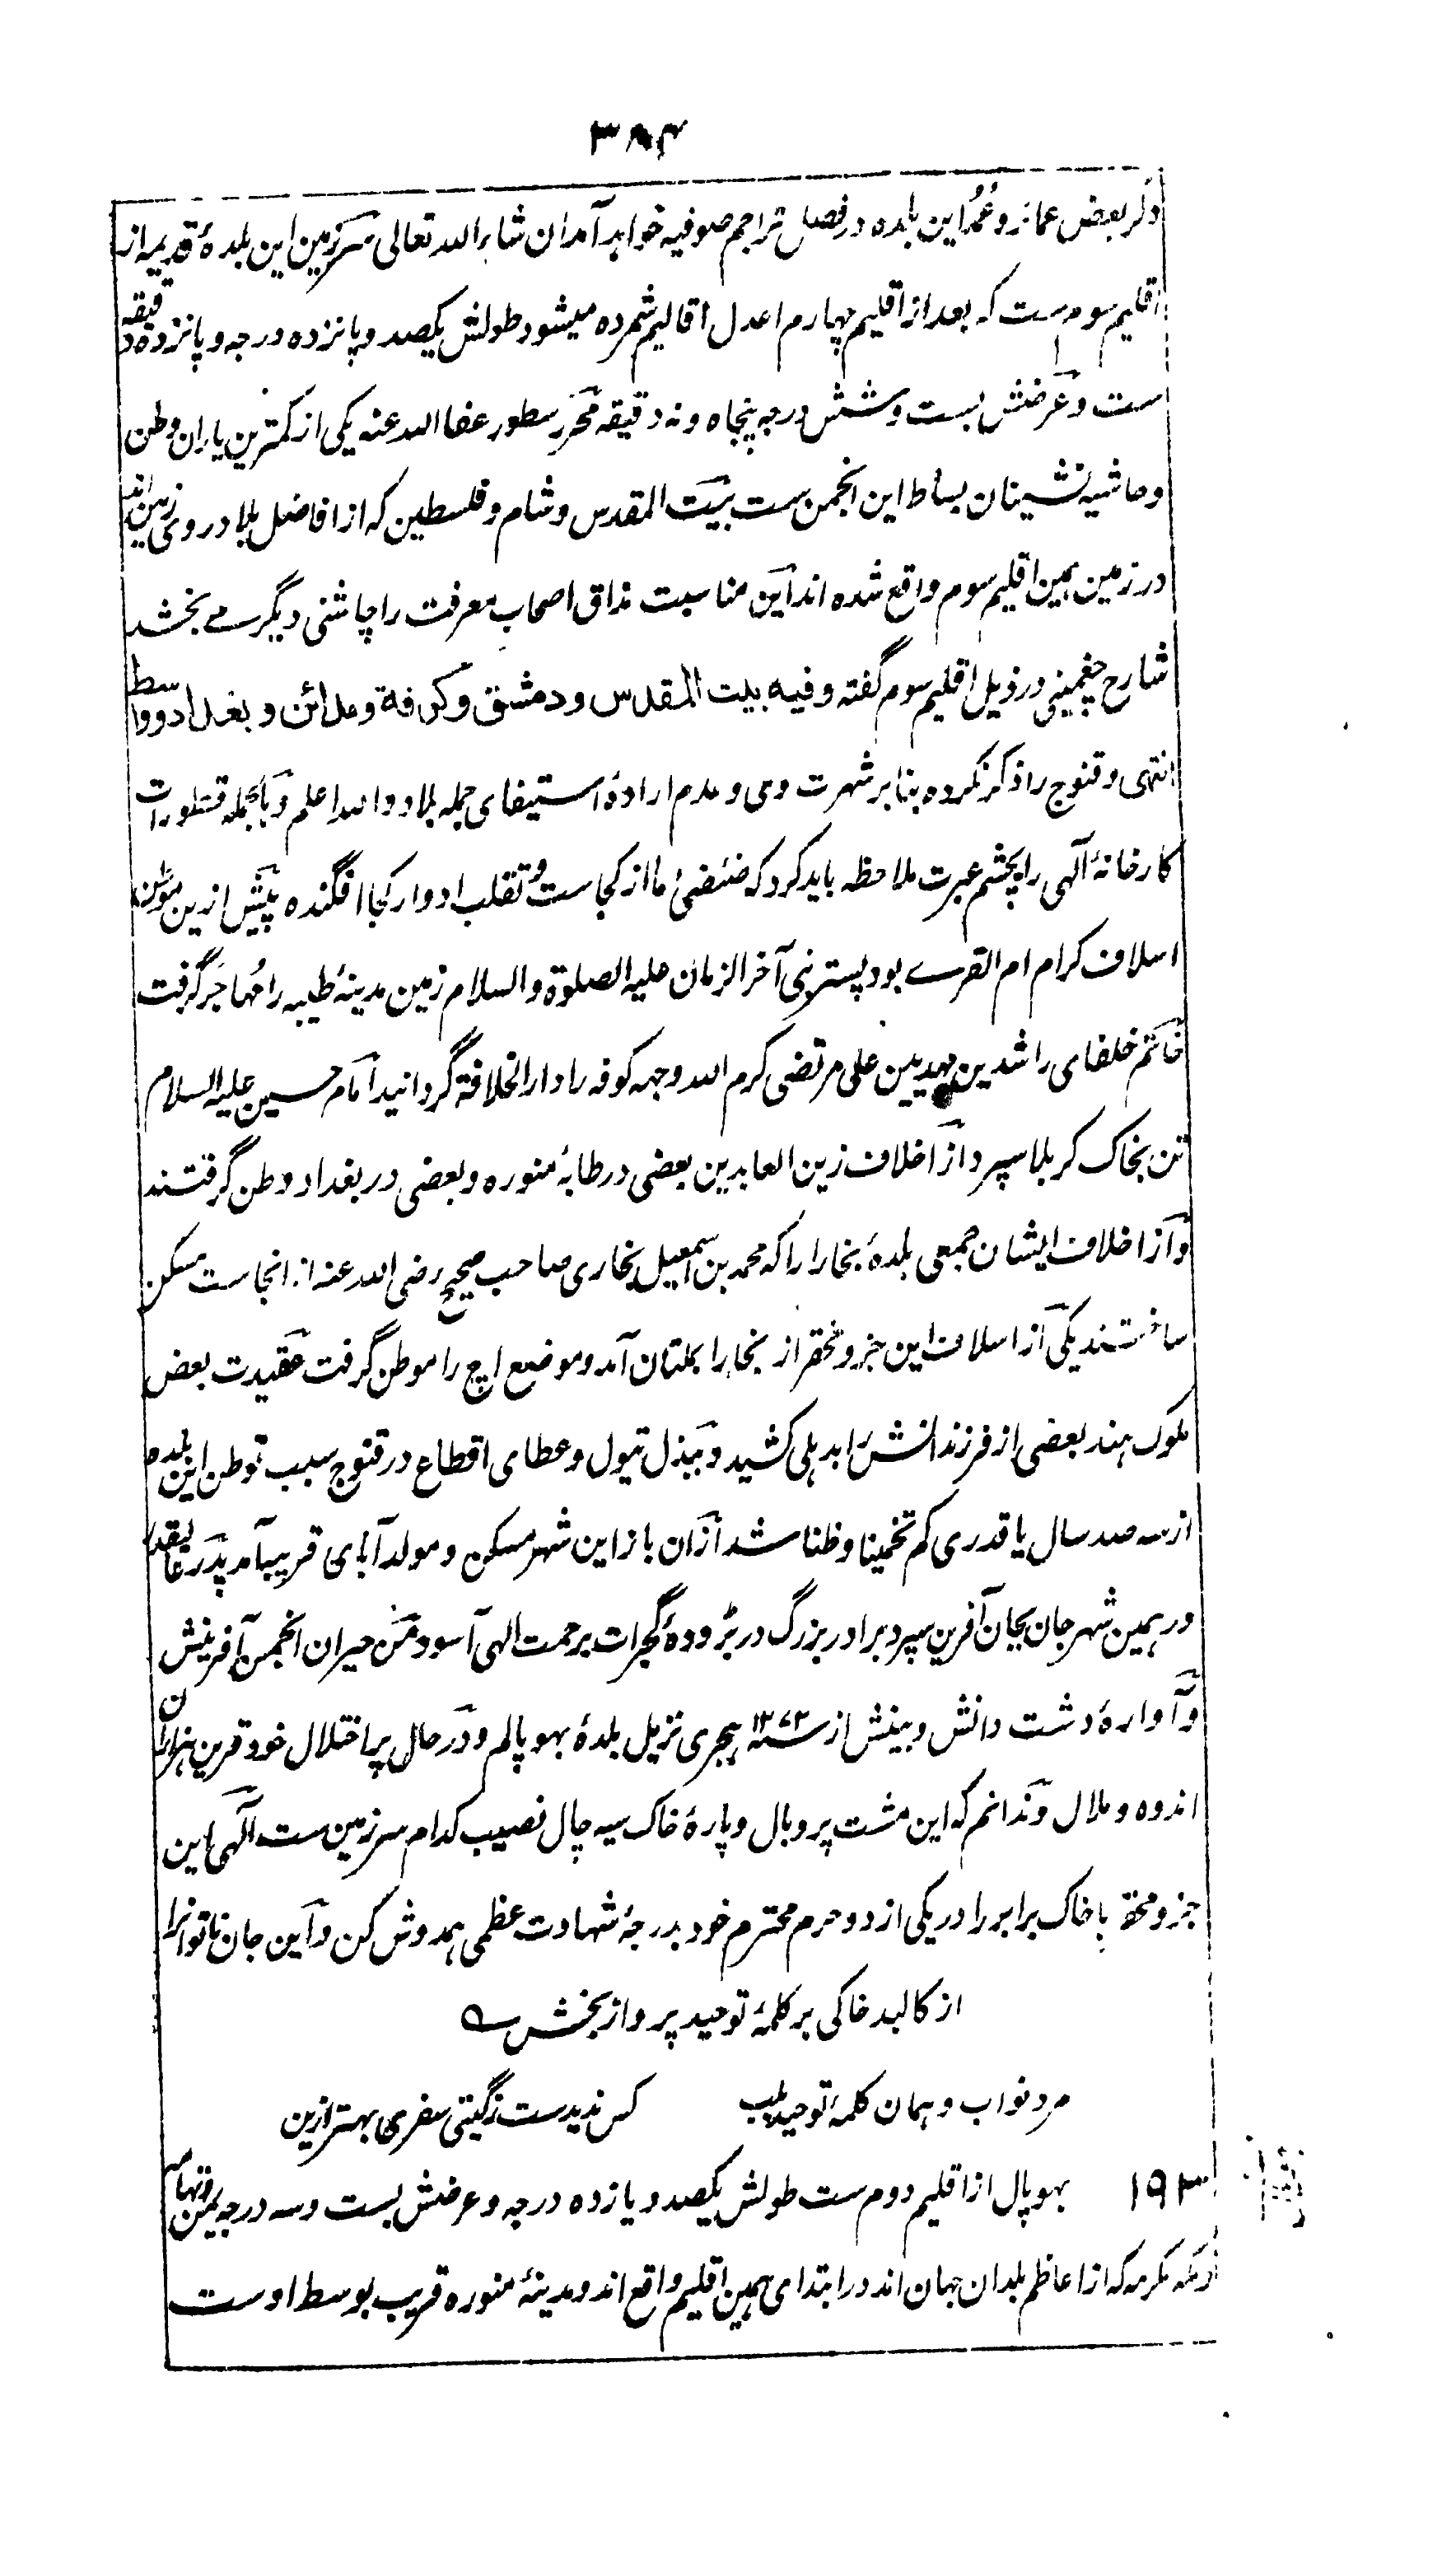 ۳۸۴
ذکر بعض عمائد و عُمُد این بلده در فصل تراجم صوفیه خواهد آمد ان شاء الله تعالی سرزمین این بلدهٔ قدیمه از
اقلیم سوم ست که بعد از اقلیم چهارم اعدل اقالیم شمرده میشود طولش یکصد و پانزده درجه و پانزده دقیقه
ست و عرضش بست و شش درجه پنجاه و نه دقیقه محرر سطور عفا الله عنه یکی از کمترین یاران وطن
و حاشیه نشینان بساط این انجمن ست بیت المقدس و شام و فلسطین که از افاضل بلاد روی زمین اند
در زمین همین اقلیم سوم واقع شده اند این مناسبت مذاق اصحاب معرفت را چاشنی دیگر مے بخشد
شارح چغمینی در ذیل اقلیم سوم گفته و فیه بیت المقدس و دمشق و کوفة و مدائن و بغداد و واسط
انتهی و قنوج را ذکر نکرده بنابر شهرت وی و عدم ارادهٔ استیفای جمله بلاد والله اعلم و بالجمله تطورات
کارخانهٔ الهی را بچشم عبرت ملاحظه باید کرد که ضئضئ ما از کجاست و تقلب ادوار کجا افگنده پیش ازین موطن
اسلاف کرام ام القرے بود پستر نبی آخر الزمان علیه الصلوة والسلام زمین مدینهٔ طیبه را مُهاجَر گرفت
خاتم خلفای راشدین مهدیین علی مرتضی کرم الله وجهه کوفه را دار الخلافة گردانید امام حسین علیه السلام
تن بخاک کربلا سپرد از اخلاف زین العابدین بعضی در طابهٔ منوره و بعضی در بغداد وطن گرفتند
و از اخلاف ایشان جمعی بلدهٔ بخارا را که محمد بن اسمعیل بخاری صاحب صحیح رضی الله عنه از انجاست مسکن
ساختند یکی از اسلاف این جزو محقر از بخارا بملتان آمد و موضع اچ را موطن گرفت عقیدت بعض
ملوک هند بعضی از فرزندانش را بدهلی کشید و ببذل تیول و عطای اقطاع در قنوج سبب توطن این بلده
از سه صد سال یا قدری کم تخمینا و ظنا شد ازان باز این شهر مسکن و مولد آبای قریب آمد پدر عالیقدر
در همین شهر جان بجان آفرین سپرد برادر بزرگ در بڑودهٔ گجرات برحمت الهی آسود من حیران انجمن آفرینش
و آوارهٔ دشت دانش و بینش از سنه ۱۲۷۳ هجری نزیل بلدهٔ بهوپالم و در حال پر اختلال خود قرین هزاران
اندوه و ملال و ندانم که این مشت پر و بال و پارهٔ خاک سیه چال نصیب کدام سرزمین ست الهی این
جزو محقر با خاک برابر را در یکی از دو حرم محترم خود بدرجهٔ شهادت عظمی همدوش کن و این جان ناتوانرا
از کالبد خاکی بر کلمهٔ توحید پرواز بخش ے
مرد نواب و همان کلمهٔ توحید بلب کس ندیدست زگیتی سفری بهتر ازین
۱۹۳ بهوپال از اقلیم دوم ست طولش یکصد و یازده درجه و عرضش بست و سه درجه یمن و تهامه
و مکه مکرمه که از اعاظم بلدان جهان اند در ابتدای همین اقلیم واقع اند و مدینهٔ منوره قریب بوسط اوست